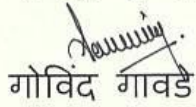 गोविंद गावडे